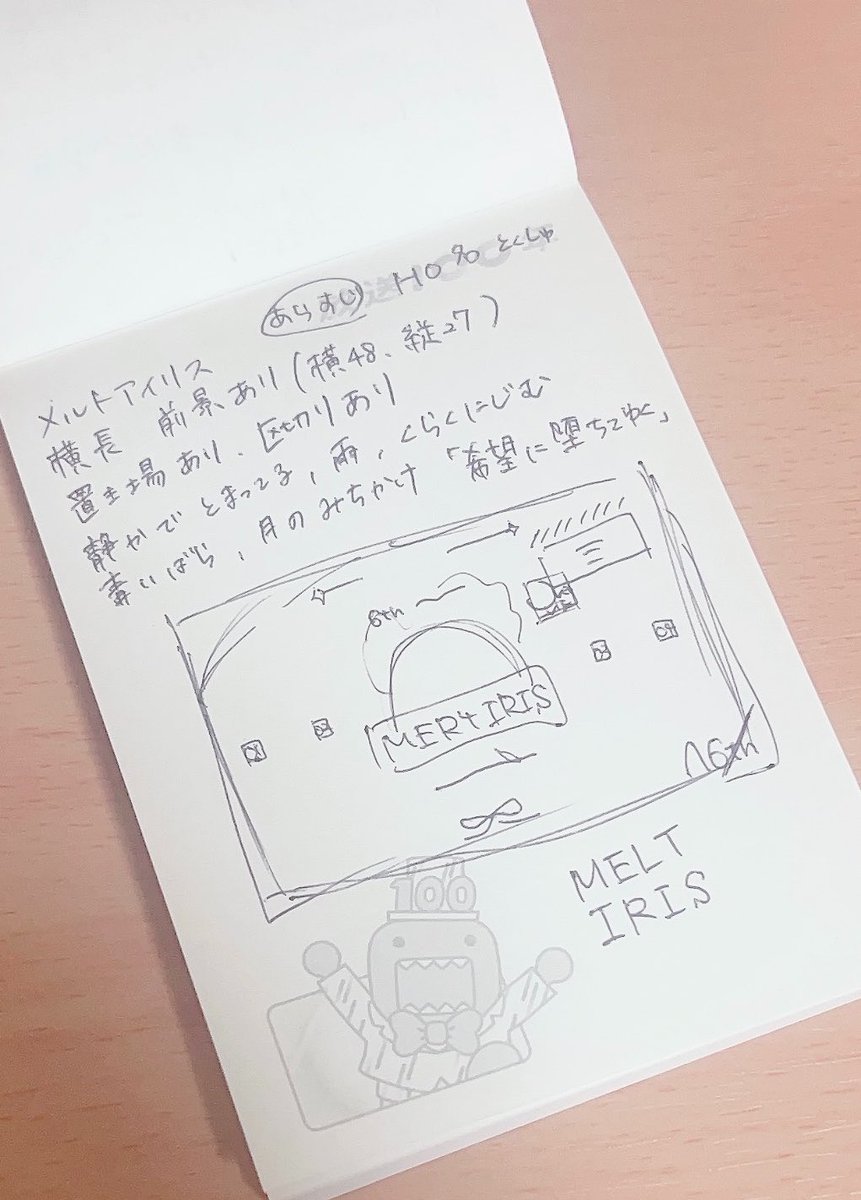 あらすじ HO名 とくしゅ
メルトアイリス
横長 前景あり(横48、縦27)
置き場あり、区切りあり
静かでとまってる,雨,くらくにじむ
青いばら,月のみちかけ「希望に堕ちてゆく」
6th
MER4 IRIS
16th
MELT
IRIS
100